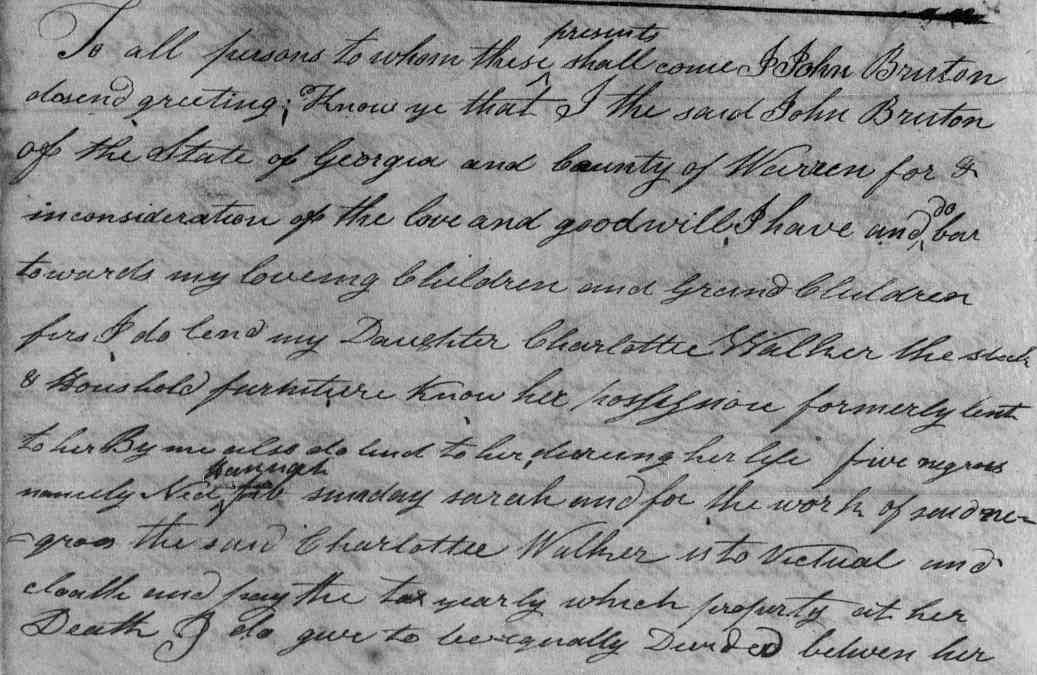 To all persons to whom these presents shall come I John Bruton
do send greeting; Know ye that I the said John Bruton
of the State of Georgia and County of Warren for &
inconsideration of the love and good will I have and do bar
towards my loveing Children and Grand Children
firs I do lend my Daughter Charlottee Walker the stock
& Houshold furniture Know her possesion formerly lent
to her By me also do lend to her dureing her life five negros
namely Ned hannah sunday sarah and for the work of said ne-
-gros the said Charlottee Walker is to victual and
cloath and pay the tax yearly which property at her
Death I do give to be equally Devided betwen her